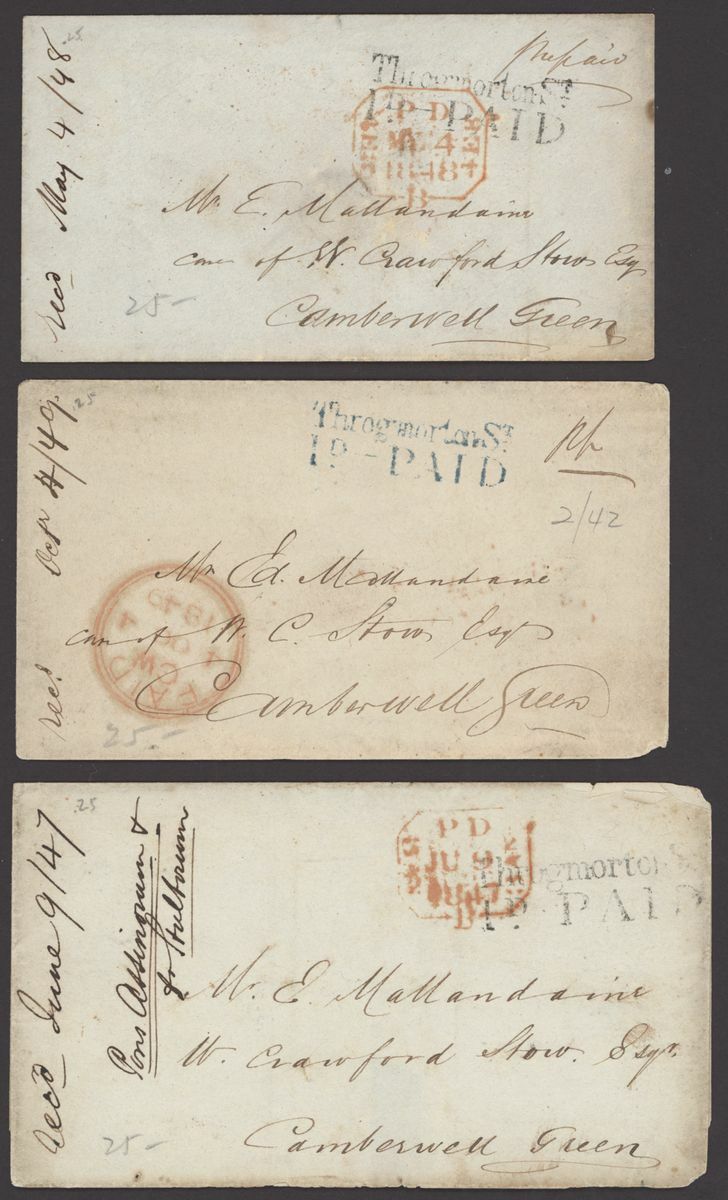 .25
recd May 4/48
prepaid
Throgmorton St
1D-PAID
PD
MY 4
1848
B
Mr E. Mallandaine
care of W. Crawford Stow Esq
Camberwell Green
25-
.25
recd Octr 4/49
Throgmorton St
1D-PAID
2/42
PAID
4 OC 4
1849
Mr Ed. Mallandaine
care of W. C. Stow Esqr
Camberwell Green
25.-
.25
recd June 9/47
Pons Assinorum &
for Stultorum
PD
JU 9
1847
Throgmorton S
1D-PAID
Mr. E Mallandaine
W. Crawford Stow. Esqr.
Camberwell Green
25-